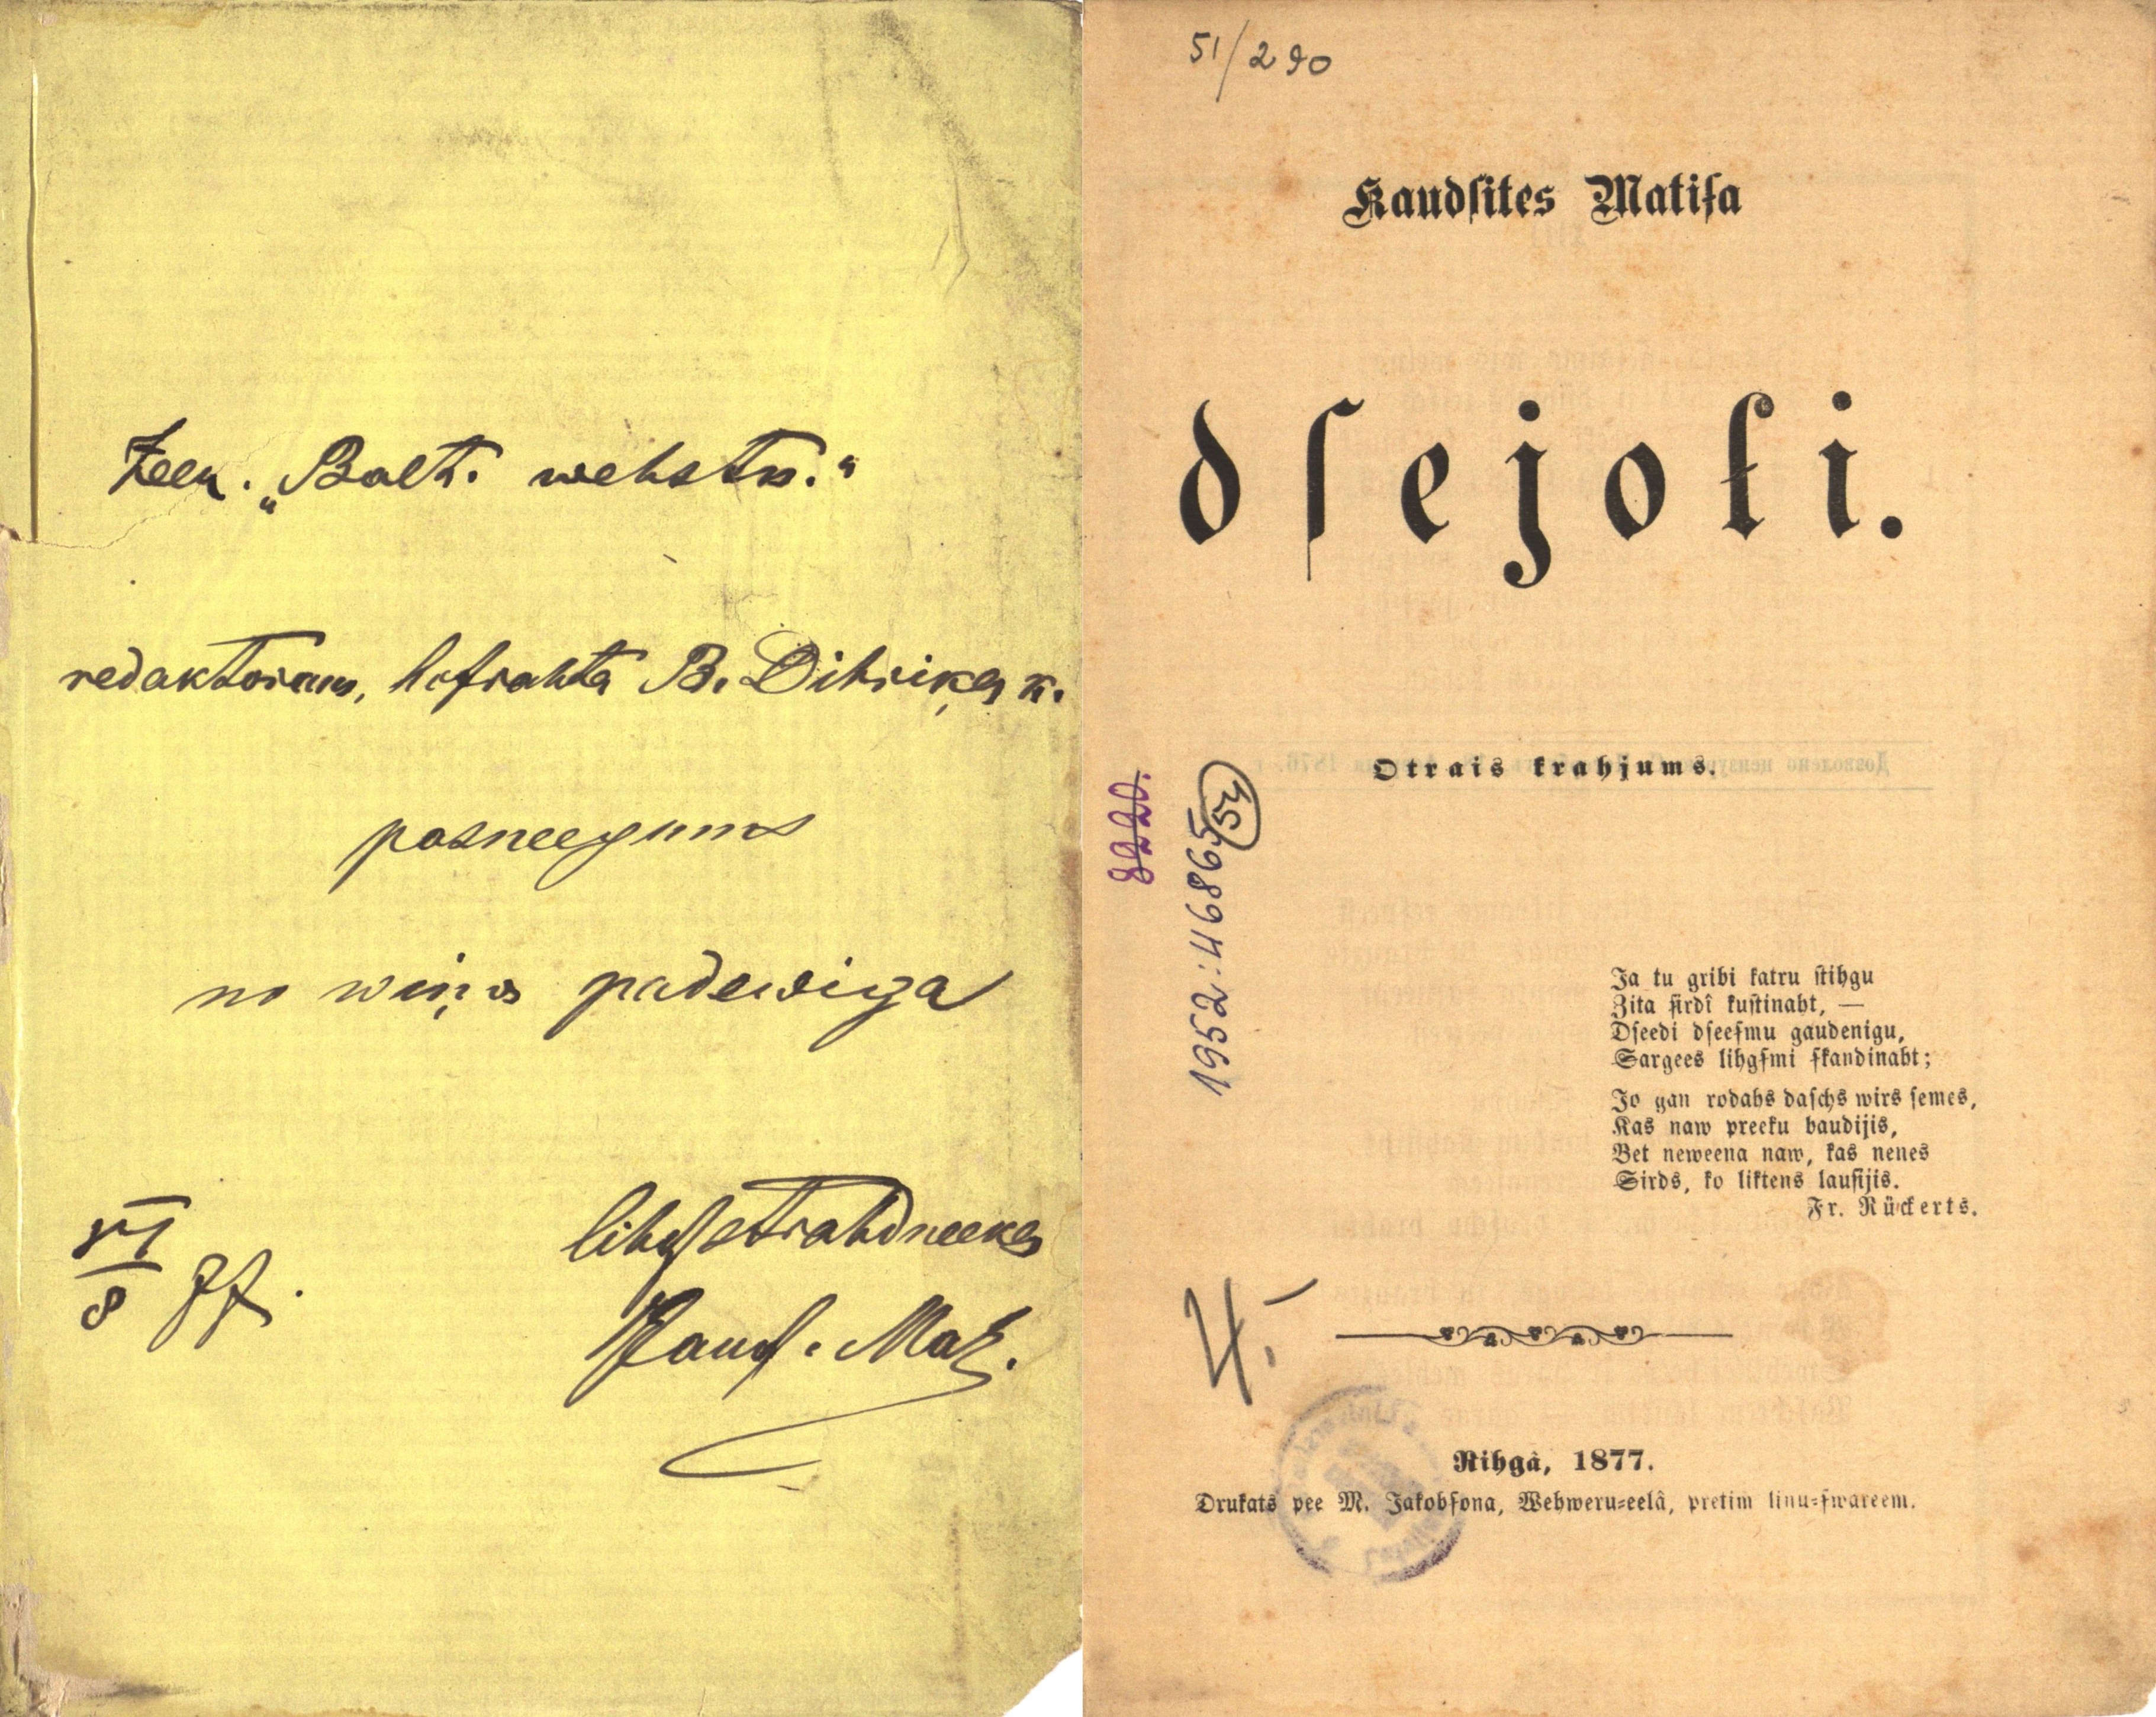 Zeen. „Balt. wehstn."
redaktoram, hofrahta B. Dihriķa k.
pasneegums
no wiņa padewiga
lihdſstrahdneeka
VI
8 77.
Kaudſ. Mat.
51/290
Kaudſites Matiſa
dſejoli.
Otrais krahjums.
8220.
1952:46865 54
Ja tu gribi katru ſtihgu
Zita ſirdî kuſtinaht, —
Dſeedi dſeeſmu gaudenigu,
Sargees lihgſmi ſkandinaht;
Jo gan rodahs daſchs wirs ſemes,
Kas naw preeku baudijis,
Bet neweena naw, kas nenes
Sirds, ko liktens lauſijis.
Fr. Rückerts.
4.—
Rihgâ, 1877.
Drukats pee M. Jakobſona, Wehweru-eelâ, pretim linu-ſwareem.